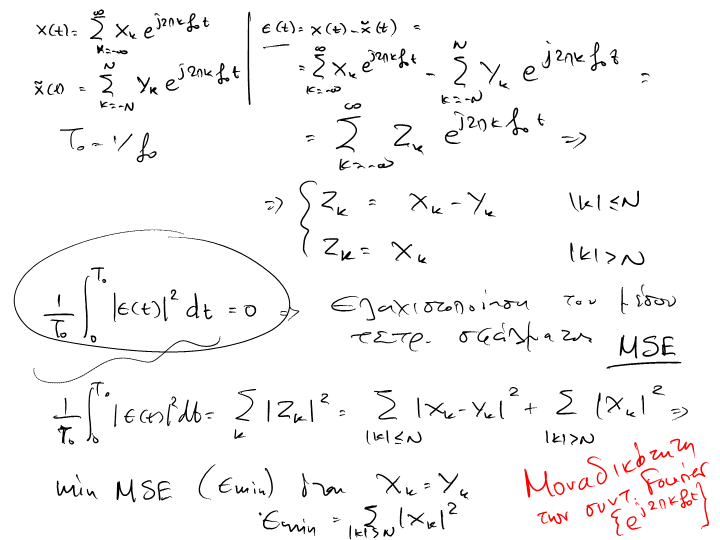 x(t) = ∑_{k=-∞}^{∞} X_k e^{j2πkf₀t}
x̃(t) = ∑_{k=-N}^{N} Y_k e^{j2πkf₀t}
T₀ = 1/f₀
ε(t) = x(t) - x̃(t) =
= ∑_{k=-∞}^{∞} X_k e^{j2πkf₀t} - ∑_{k=-N}^{N} Y_k e^{j2πkf₀t} =
= ∑_{k=-∞}^{∞} Z_k e^{j2πkf₀t} =>
=> { Z_k = X_k - Y_k |k| ≤ N
Z_k = X_k |k| > N
1/T₀ ∫₀^{T₀} |ε(t)|² dt = 0 => Ελαχιστοποίηση του μέσου
τετρ. σφάλματος MSE
1/T₀ ∫₀^{T₀} |ε(t)|² dt = ∑_k |Z_k|² = ∑_{|k|≤N} |X_k - Y_k|² + ∑_{|k|>N} |X_k|² =>
min MSE (εmin) όταν X_k = Y_k
εmin = ∑_{|k|>N} |X_k|²
Μοναδικότητα
των συντ. Fourier
{e^{j2πkf₀t}}